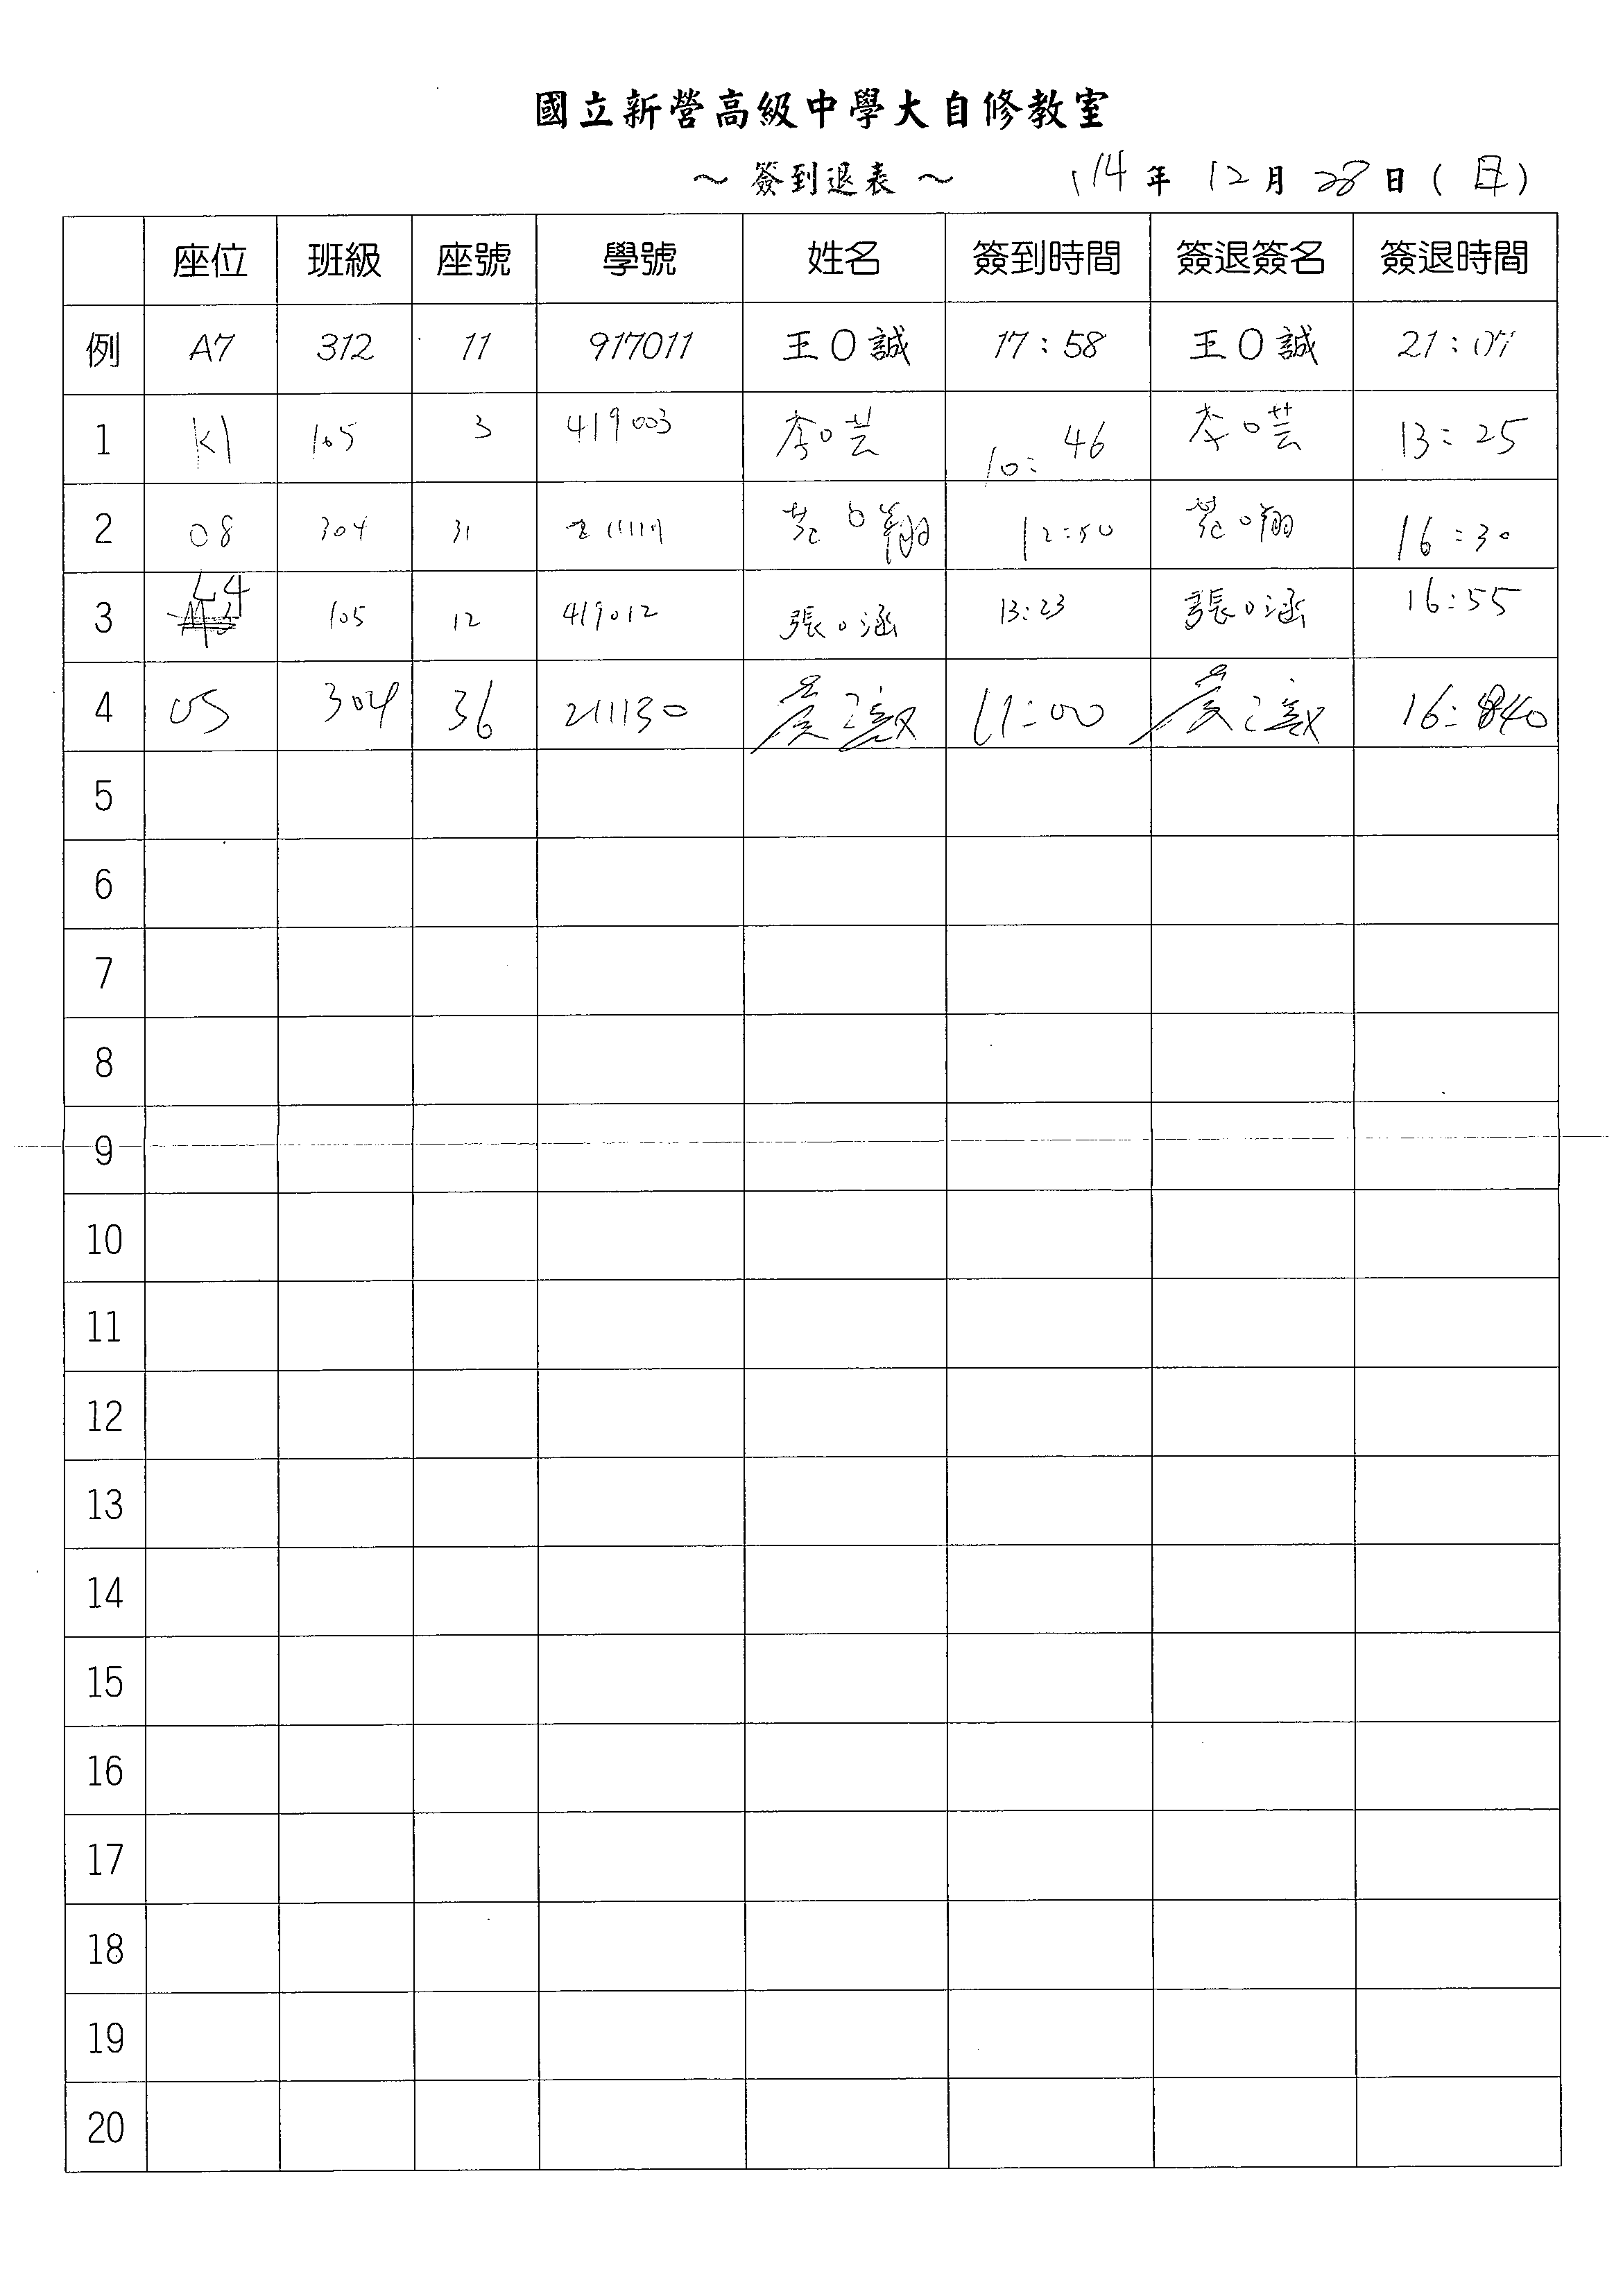 國立新營高級中學大自修教室
～ 簽到退表 ～ 114 年 12 月 28 日 ( 日 )
座位 班級 座號 學號 姓名 簽到時間 簽退簽名 簽退時間
例 A7 312 11 917011 王O誠 17:58 王O誠 21:07
1 K1 105 3 419003 李O芸 10:46 李O芸 13:25
2 O8 304 31 范O翔 12:50 范O翔 16:30
3 L4 105 12 419012 張O涵 13:23 張O涵 16:55
4 304 36 211130 16:40
5
6
7
8
9
10
11
12
13
14
15
16
17
18
19
20